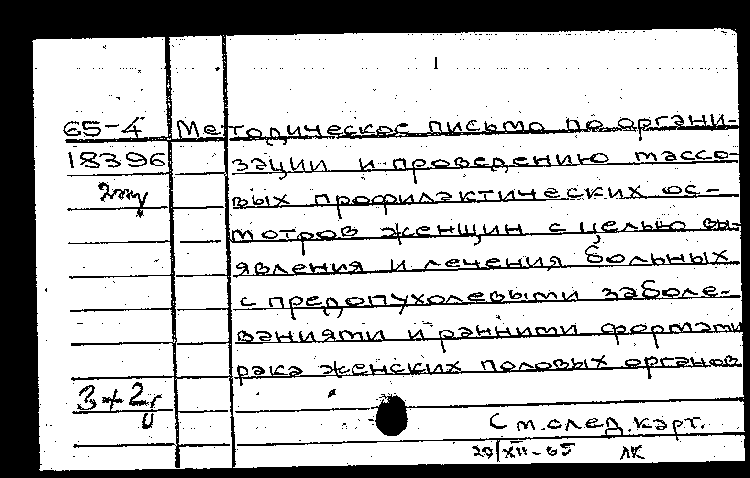 1
65-4 Методическое письмо по органи-
18396 зации и проведению массо-
вых профилактических ос-
мотров женщин с целью вы-
явления и лечения больных
с предопухолевыми заболе-
ваниями и ранними формами
рака женских половых органов
См. след. карт.
ЛК